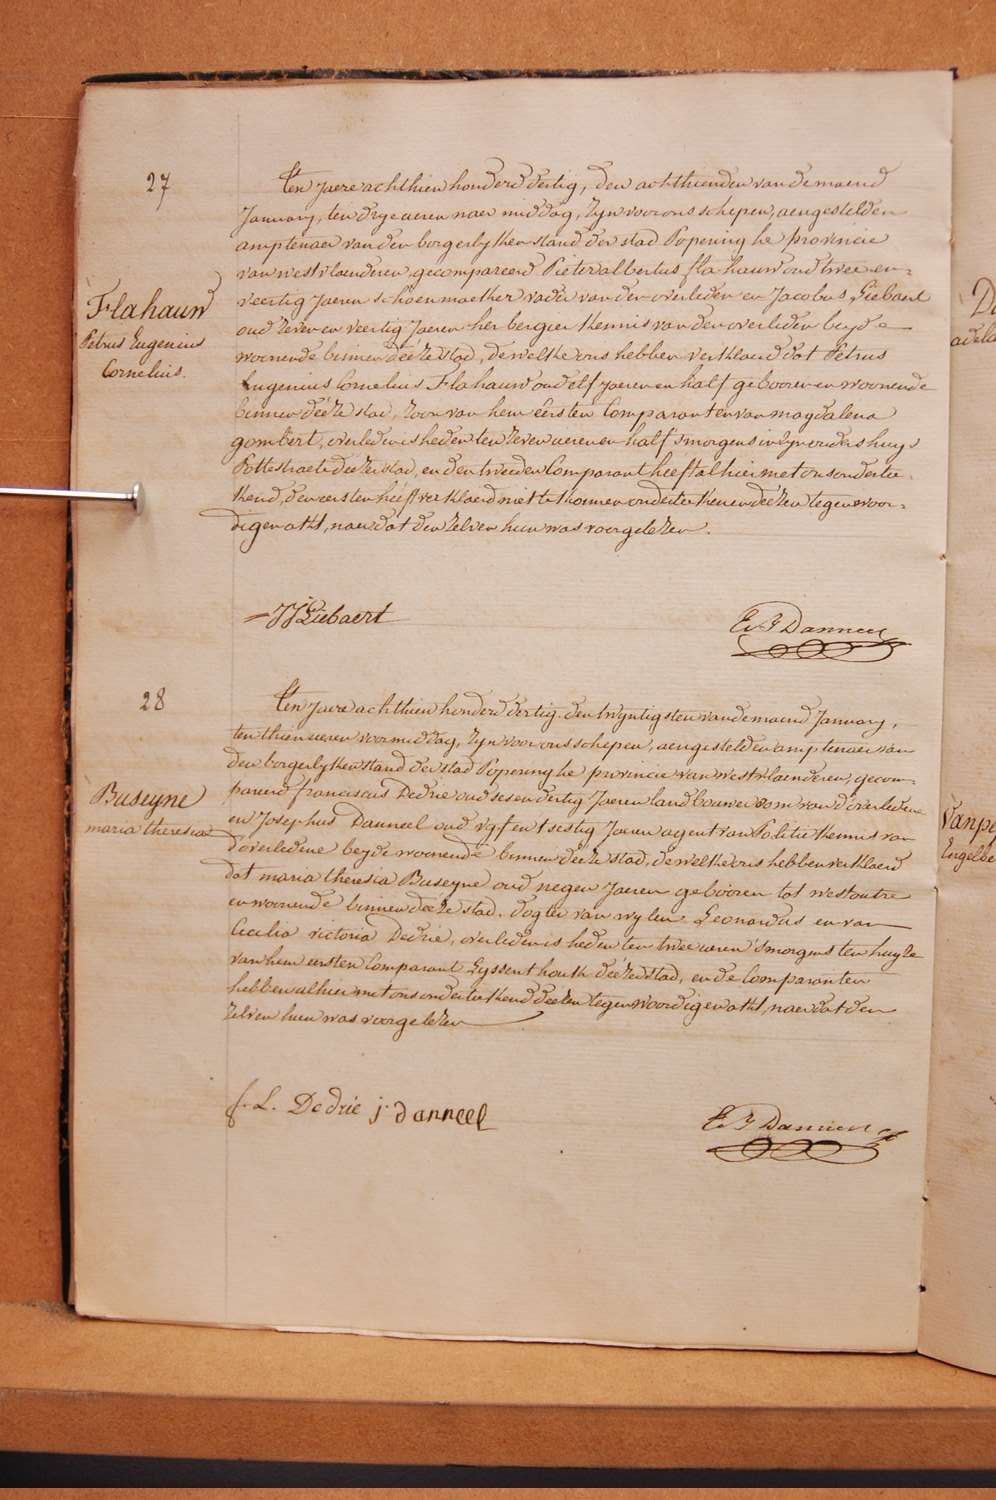 27
Ten jaere achthien honderd dertig, den achthienden van de maend
January, ten drye ueren naer middag, zyn voor ons schepen, aengestelden
amptenaer van den borgerlyken stand der stad Poperinghe provincie
van westvlaenderen, gecompareerd Pieter albertus flahauw oud twee en-
Flahauw
Petrus Eugenius
Cornelius.
veertig jaeren schoenmaeker vader van den overleden en Jacobus Liebaert
oud zeven en veertig Jaeren herbergier kennis van den overleden beyde
woonende binnen deéze stad, de welke ons hebben verklaerd dat Petrus
Eugenius Cornelius Flahauw oud elf jaeren en half gebooren en woonende
binnen deéze stad, zoon van hem eérsten Comparant en van magdalena
gombert, overleden is heden ten zeven ueren en half smorgens in zyn ouders huys
Pottestraete deézer stad, en den tweeden Comparant heeft alhier met ons onderteé-
kend, den eersten heéft verklaerd niet te konnen onderteekenen deézen tegenwoor-
digen akt, naer dat den zelven hun was voorgelezen.
JJ Liebaert
E. J Danneel
28
Ten jaere achthien honderd dertig den twyntigsten van de maend January,
ten thien ueren voormiddag, zyn voor ons schepen, aengestelden amptenaer van
den borgerlyken stand der stad Poperinghe provincie van westvlaenderen, gecom-
Buseyne
maria theresia
pareerd franciscus Dedrie oud ses en dertig Jaeren landbouwer oom van d'overledene
en Josephus Danneel oud vyf en tsestig Jaeren agent van Politie kennis van
d'overledene beyde woonende binnen deéze stad, de welke ons hebben verklaerd
dat maria theresia Buseyne oud negen Jaeren gebooren tot westoutre
en woonende binnen deéze stad, dogter van wylen Leonardus en van
Cecilia victoria Dedrie, overleden is heden ten twee ueren 'smorgens ten huyze
van hem eersten Comparant Eyssenthoek deézer stad, en de Comparanten
hebben alhier met ons onderteekend deézen tegenwoordigen akt, naer dat den
zelven hun was voorgelezen
f. L. Dedrie j. danneel
E. J Danneel